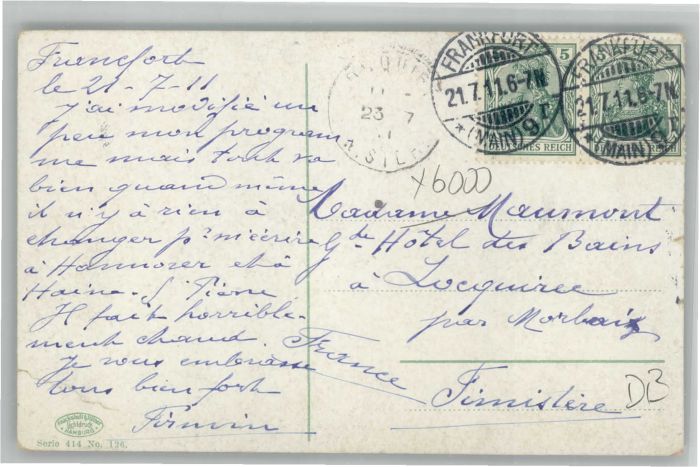 Francfort
le 21-7-11
j'ai modifié un
peu mon program
me mais tout va
bien quand même
il n'y a rien à
changer pr m'écrire
à Hannover et à
Haine-St Pierre
Il fait horrible-
ment chaud.
Je vous embrasse
tous bien fort
Firmin
Hamburg
Serie 414 No. 126.
FRANKFURT
21.7.11.6-7N.
*(MAIN)9 r.
FRANKFURT
21.7.11.6-7N.
*(MAIN)9 r.
5
DEUTSCHES REICH
DEUTSCHES REICH
23 - 7
FINISTER
X6000
Madame Maumont
Gd Hôtel des Bains
à Locquirec
par Morlaix
France
Finistère
DB